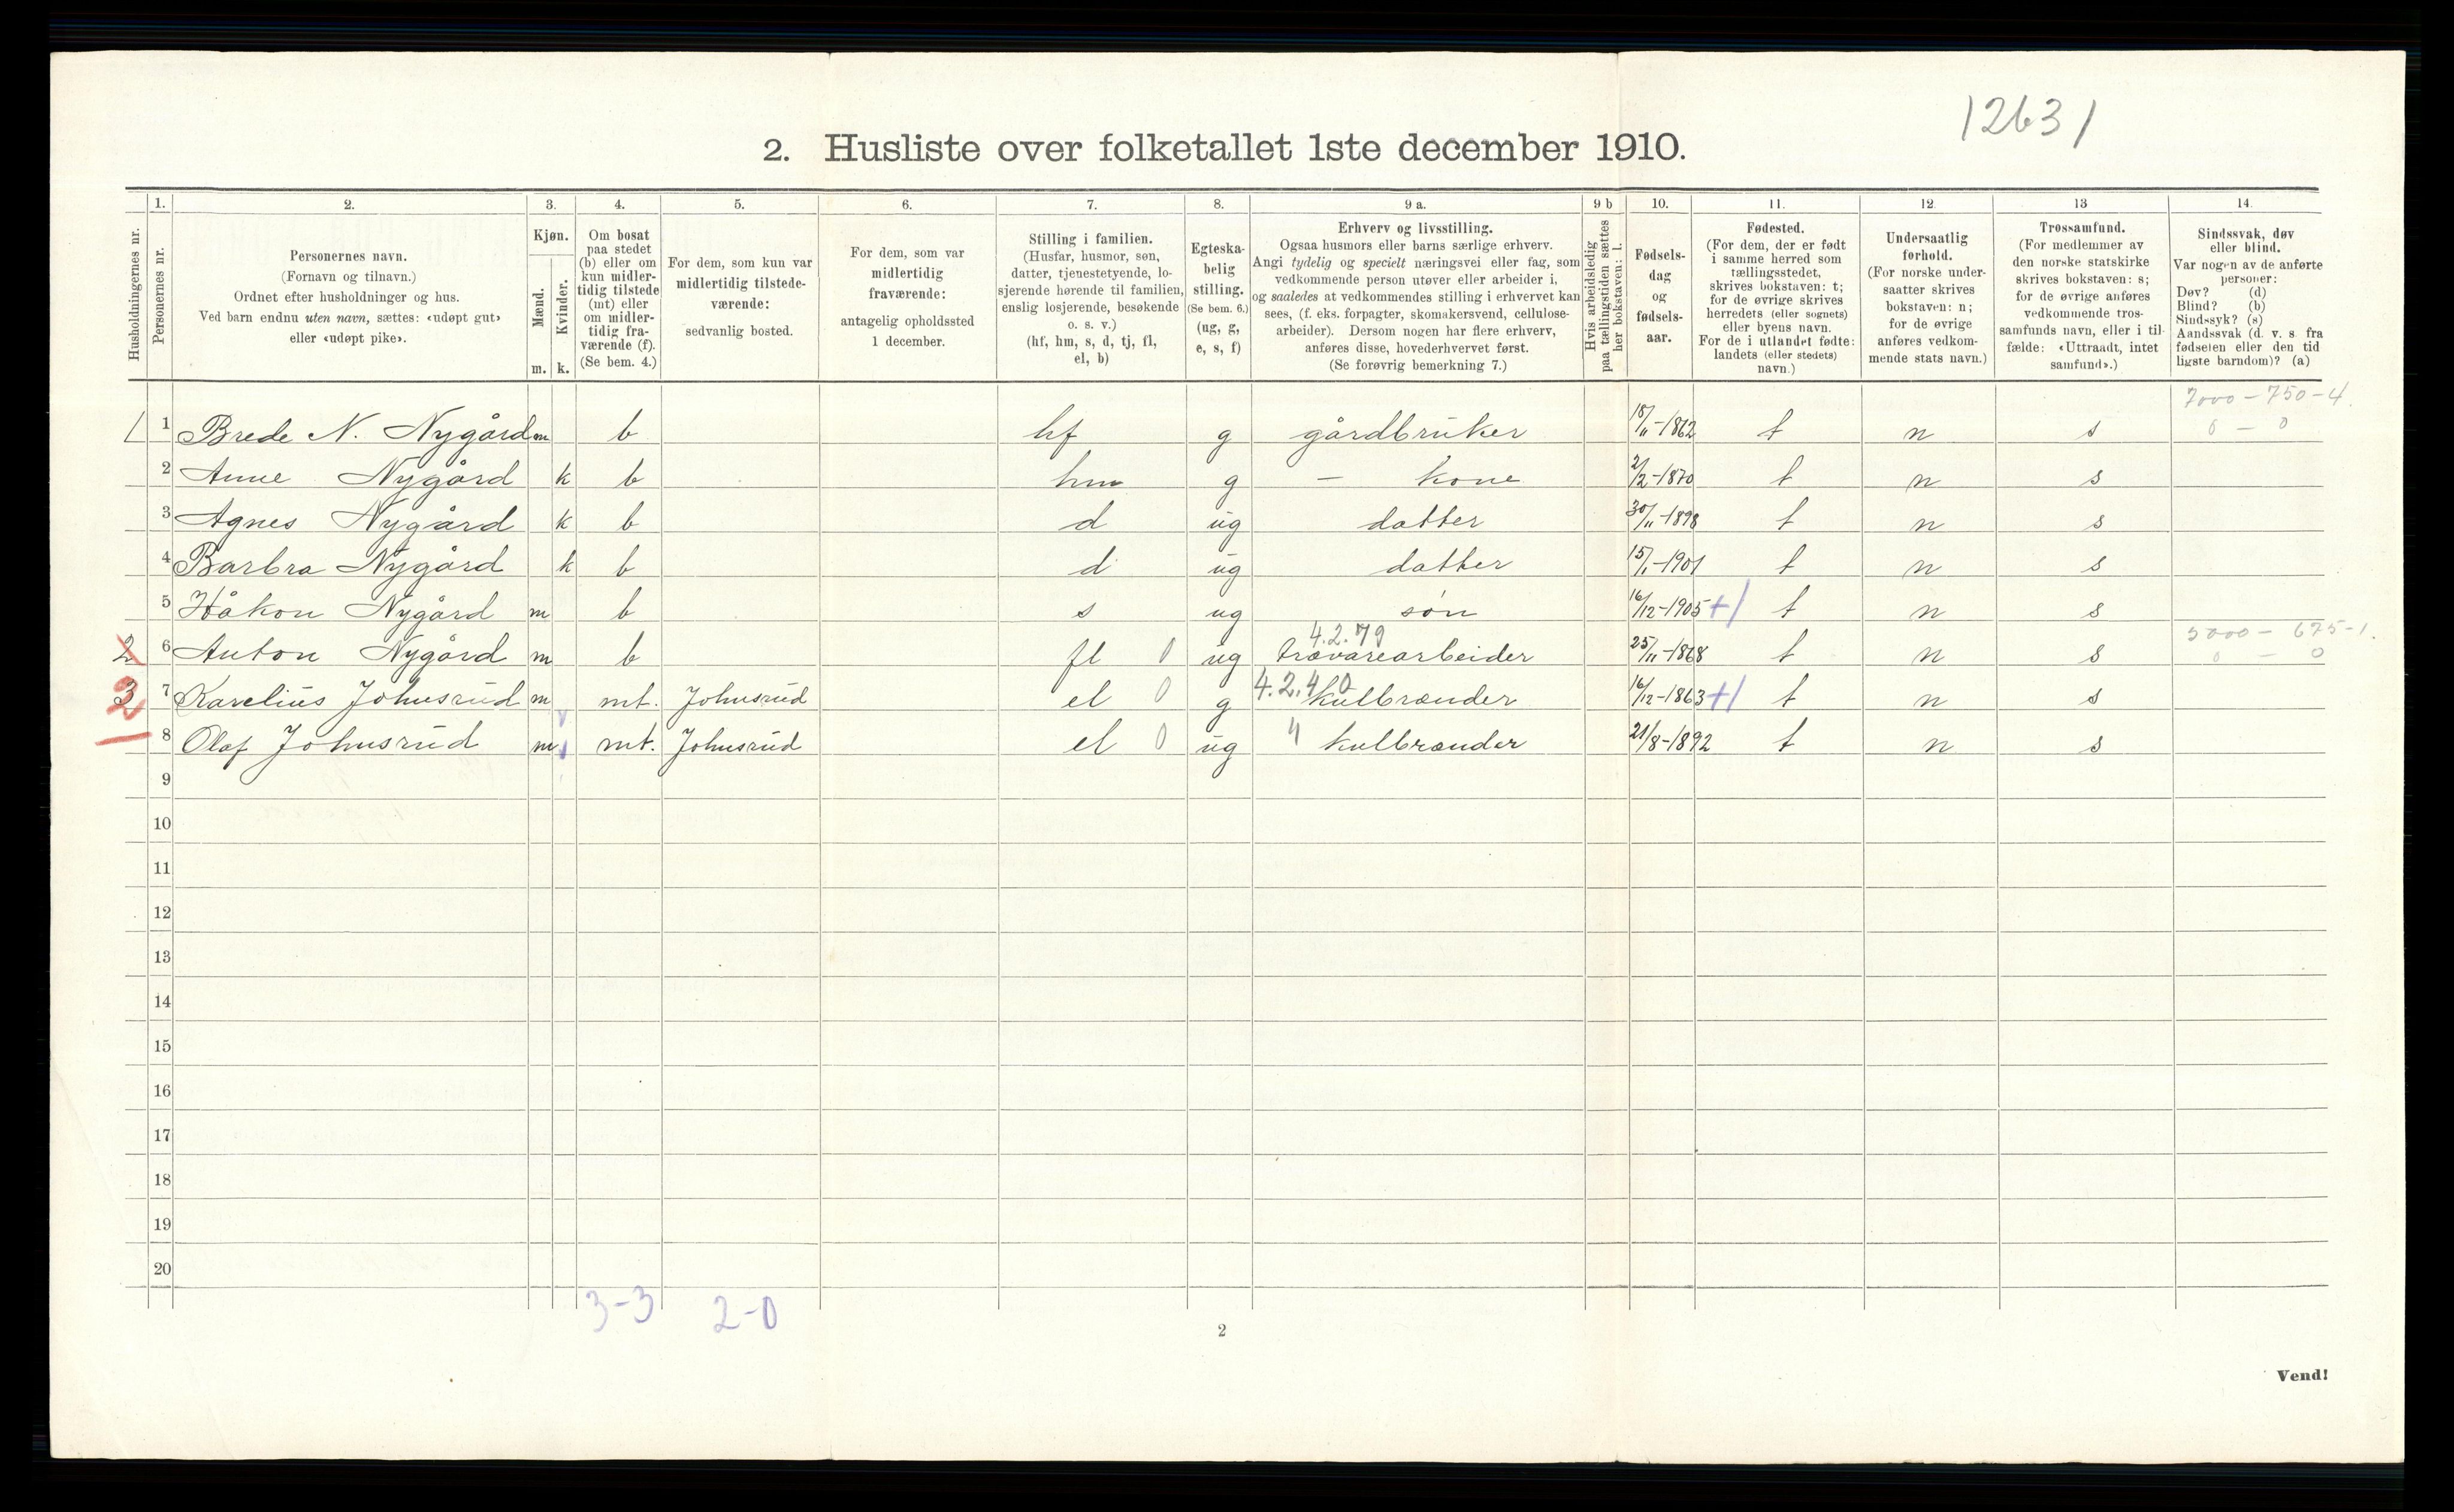 12631
2. Husliste over folketallet 1ste december 1910.
Husholdningernes nr.
1.
Personernes nr.
2.
Personernes navn.
(Fornavn og tilnavn.)
Ordnet efter husholdninger og hus.
Ved barn endnu uten navn, sættes: «udøpt gut»
eller «udøpt pike».
3.
Kjøn.
Mænd.
Kvinder.
m. k.
4.
Om bosat
paa stedet
(b) eller om
kun midler-
tidig tilstede
(mt) eller
om midler-
tidig fra-
værende (f).
(Se bem. 4.)
5.
For dem, som kun var
midlertidig tilstede-
værende:
sedvanlig bosted.
6.
For dem, som var
midlertidig
fraværende:
antagelig opholdssted
1 december.
7.
Stilling i familien.
(Husfar, husmor, søn,
datter, tjenestetyende, lo-
sjerende hørende til familien,
enslig losjerende, besøkende
o. s. v.)
(hf, hm, s, d, tj, fl,
el, b)
8.
Egteska-
belig
stilling.
(Se bem. 6.)
(ug, g,
e, s, f)
9 a.
Erhverv og livsstilling.
Ogsaa husmors eller barns særlige erhverv.
Angi tydelig og specielt næringsvei eller fag, som
vedkommende person utøver eller arbeider i,
og saaledes at vedkommendes stilling i erhvervet kan
sees, (f. eks. forpagter, skomakersvend, cellulose-
arbeider). Dersom nogen har flere erhverv,
anføres disse, hovederhvervet først.
(Se forøvrig bemerkning 7.)
9 b
Hvis arbeidsledig
paa tællingstiden sættes
her bokstaven: l.
10.
Fødsels-
dag
og
fødsels-
aar.
11.
Fødested.
(For dem, der er født
i samme herred som
tællingsstedet,
skrives bokstaven: t;
for de øvrige skrives
herredets (eller sognets)
eller byens navn.
For de i utlandet fødte:
landets (eller stedets)
navn.)
12.
Undersaatlig
forhold.
(For norske under-
saatter skrives
bokstaven: n;
for de øvrige
anføres vedkom-
mende stats navn.)
13
Trossamfund.
(For medlemmer av
den norske statskirke
skrives bokstaven: s;
for de øvrige anføres
vedkommende tros-
samfunds navn, eller i til-
fælde: «Uttraadt, intet
samfund».)
14.
Sindssvak, døv
eller blind.
Var nogen av de anførte
personer:
Døv? (d)
Blind? (b)
Sindssyk? (s)
Aandssvak (d. v. s. fra
fødselen eller den tid-
ligste barndom)? (a)
7000 - 750 - 4.
1 1 Brede N. Nygård m b hf g gårdbruker 18/11-1862 t n s 0 - 0
2 Anne Nygård k b hm g - kone 2/2-1870 t n s
3 Agnes Nygård k b d ug datter 30/11-1898 t n s
4 Barbra Nygård k b d ug datter 15/1-1901 t n s
5 Håkon Nygård m b s ug søn 16/12-1905 +1 t n s
4.2.79 5000 - 675-1.
2 6 Anton Nygård m b fl 0 ug trævarearbeider 25/11-1868 t n s 0 - 0
4.2.40
3 2 7 Karelius Johnsrud m mt. Johnsrud el 0 g kulbrænder 16/12-1863 +1 t n s
8 Olaf Johnsrud m mt. Johnsrud el 0 ug 4 kulbrænder 21/8-1892 t n s
9
10
11
12
13
14
15
16
17
18
19
20
3-3 2-0
2
Vend!